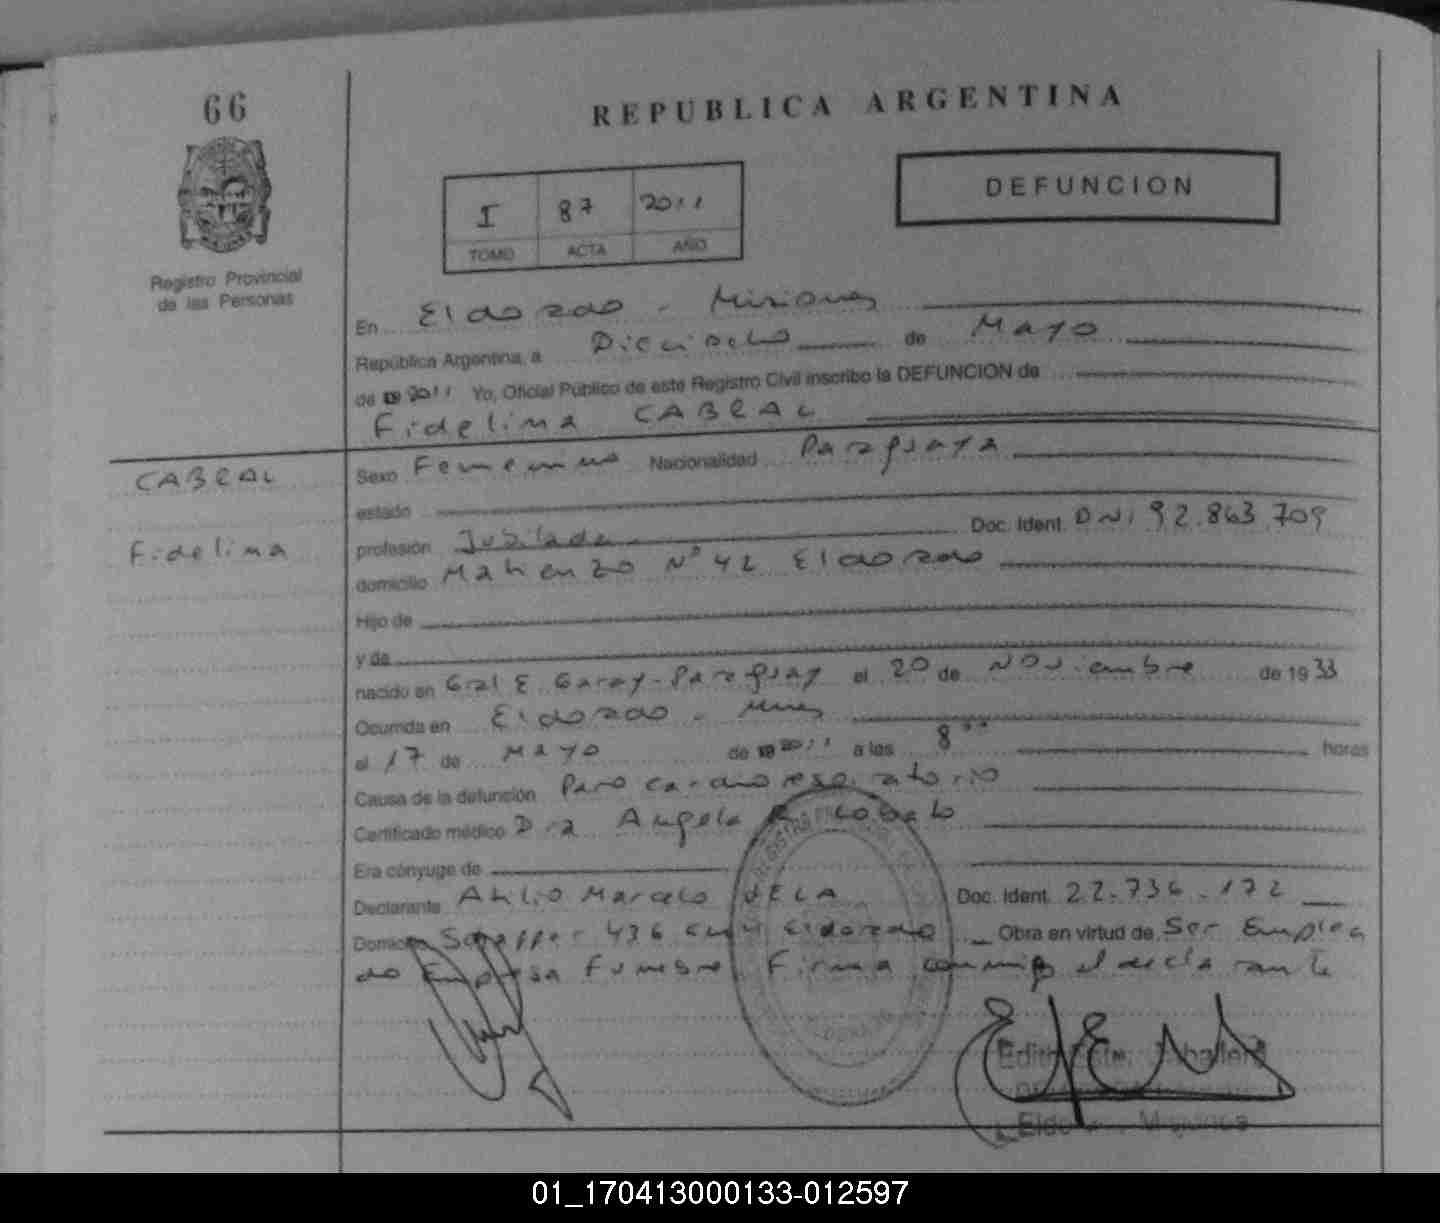 66
REPUBLICA ARGENTINA
DEFUNCION
I 87 2011
TOMO ACTA AÑO
Registro Provincial
de las Personas
En Eldorado - Misiones
República Argentina, a Dieciocho de Mayo
de 2011 Yo, Oficial Público de este Registro Civil inscribo la DEFUNCION de
Fidelina CABRAL
CABRAL
Fidelina
Sexo Femenino Nacionalidad Paraguaya
estado
profesión Jubilada Doc. Ident. DNI 92.863.709
domicilio Matienzo Nº 42 Eldorado
Hijo de
y de
nacido en Gral E. Garay - Paraguay el 20 de Noviembre de 1933
Ocurrida en Eldorado - Mnes
el 17 de Mayo de 2011 a las 8 horas
Causa de la defunción Paro cardiorespiratorio
Certificado médico Dra Angela R. Lobato
Era cónyuge de
Declarante Atilio Marcelo VELA Doc. Ident. 22.736.172
Domicilio 436 Eldorado Obra en virtud de Ser Emplea
do Empresa Funebre Firma conmigo el declarante
Eldorado Misiones
01_170413000133-012597